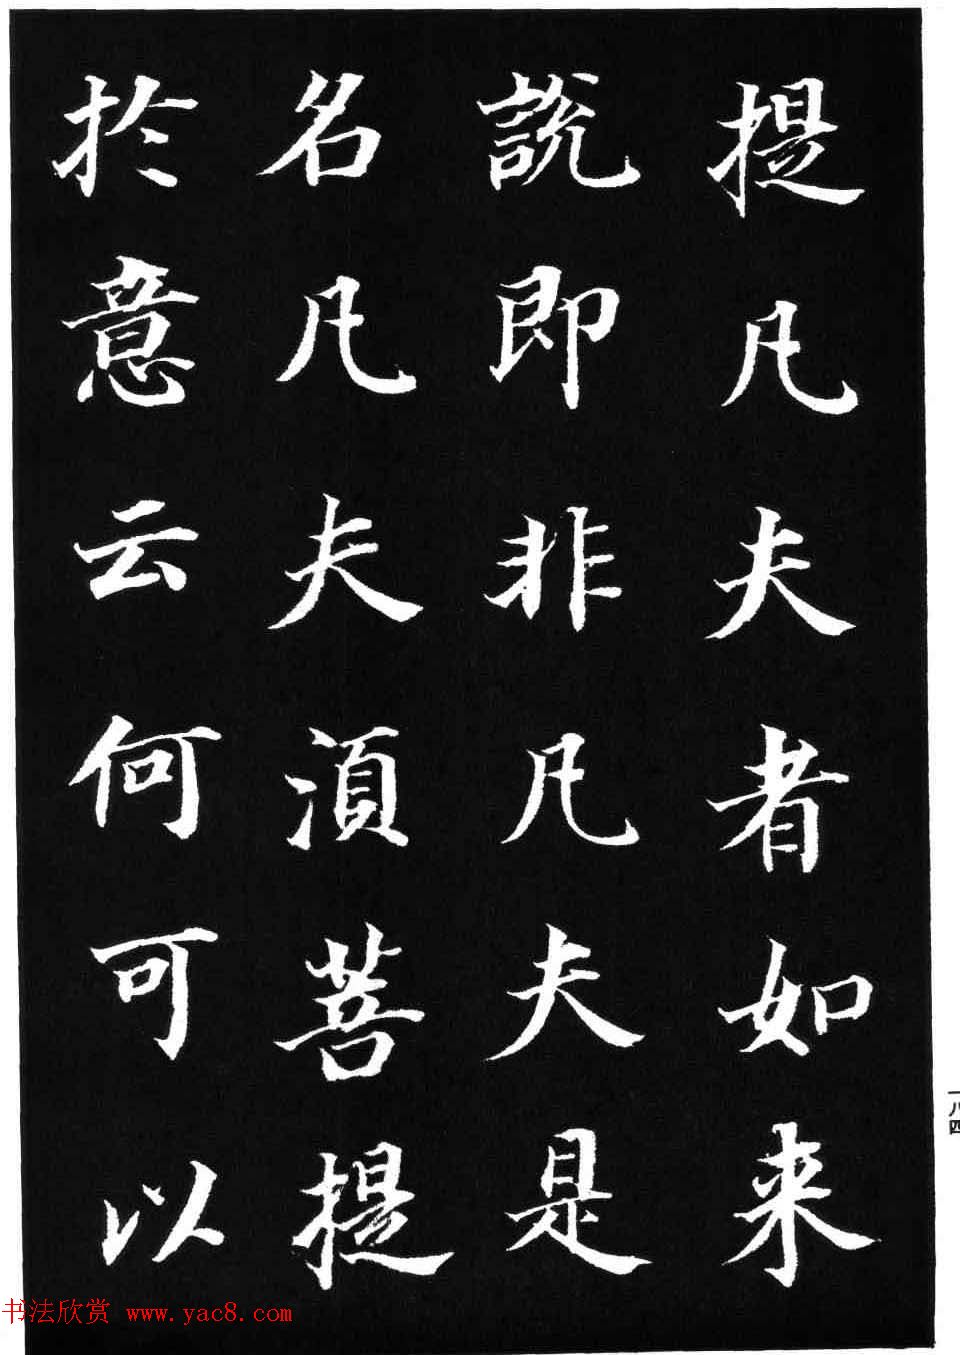 提凡夫者如来
説即非凡夫是
名凡夫湏菩提
於意云何可以
一八四
书法欣赏 www.yac8.com